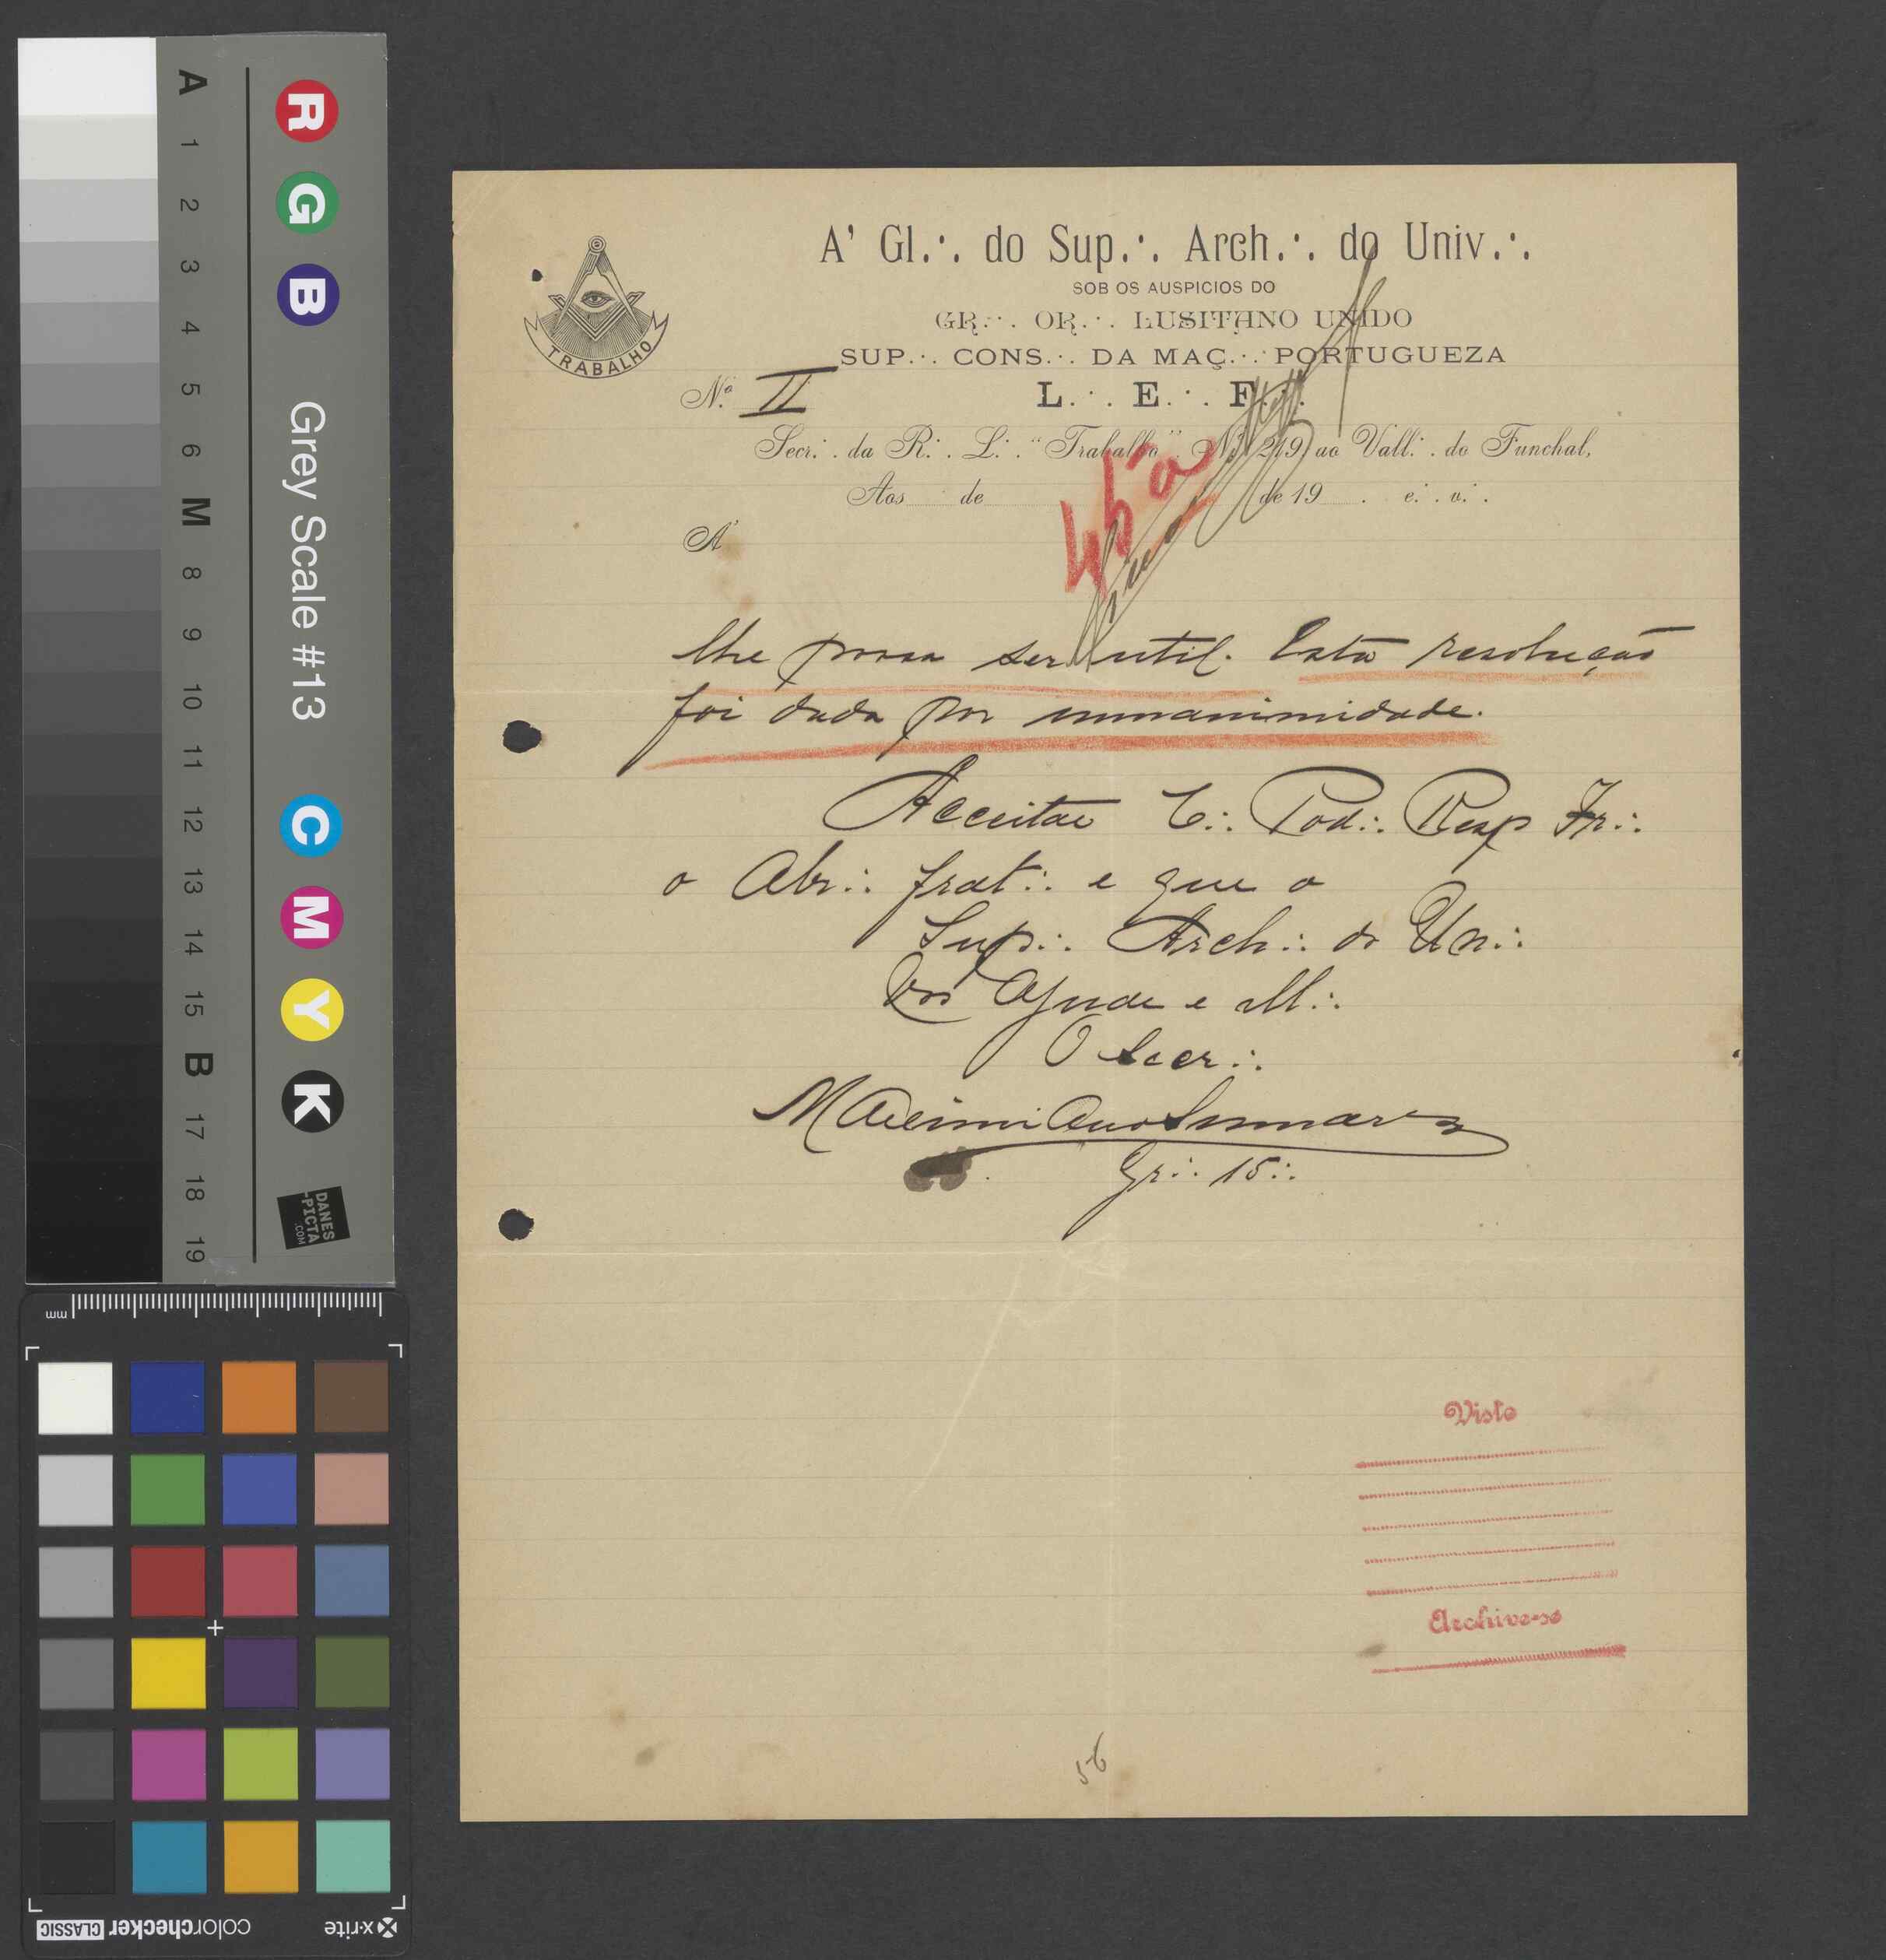 A' Gl.·. do Sup.·. Arch.·. do Univ.·.
SOB OS AUSPICIOS DO
GR.·. OR.·. LUSITANO UNIDO
SUP.·. CONS.·. DA MAÇ.·. PORTUGUEZA
TRABALHO
Nº. II
L.·. E.·. F.·.
Secr.·. da R.·. L.·. "Trabalho" Nº 219) ao Vall.·. do Funchal,
Aos de de 19 . e.·. v.·.
A'
45ª
lhe possa ser util. Esta resolução
foi dada por unnanimidade.
Acceitae C.·. Pod.·. Resp Ir.·.
o Abr.·. frat.·. e que o
Sup.·. Arch.·. do Un.·.
Vos Ajude e Ill.·.
O Secr.·.
Gr.·. 15.·.
Visto
Archive-se
56
A
1
2
3
4
5
6
M
8
9
10
11
12
13
14
15
B
17
18
19
R
G
B
Grey Scale #13
C
M
Y
K
DANES
-PICTA
.COM
mm
x-rite
colorchecker CLASSIC